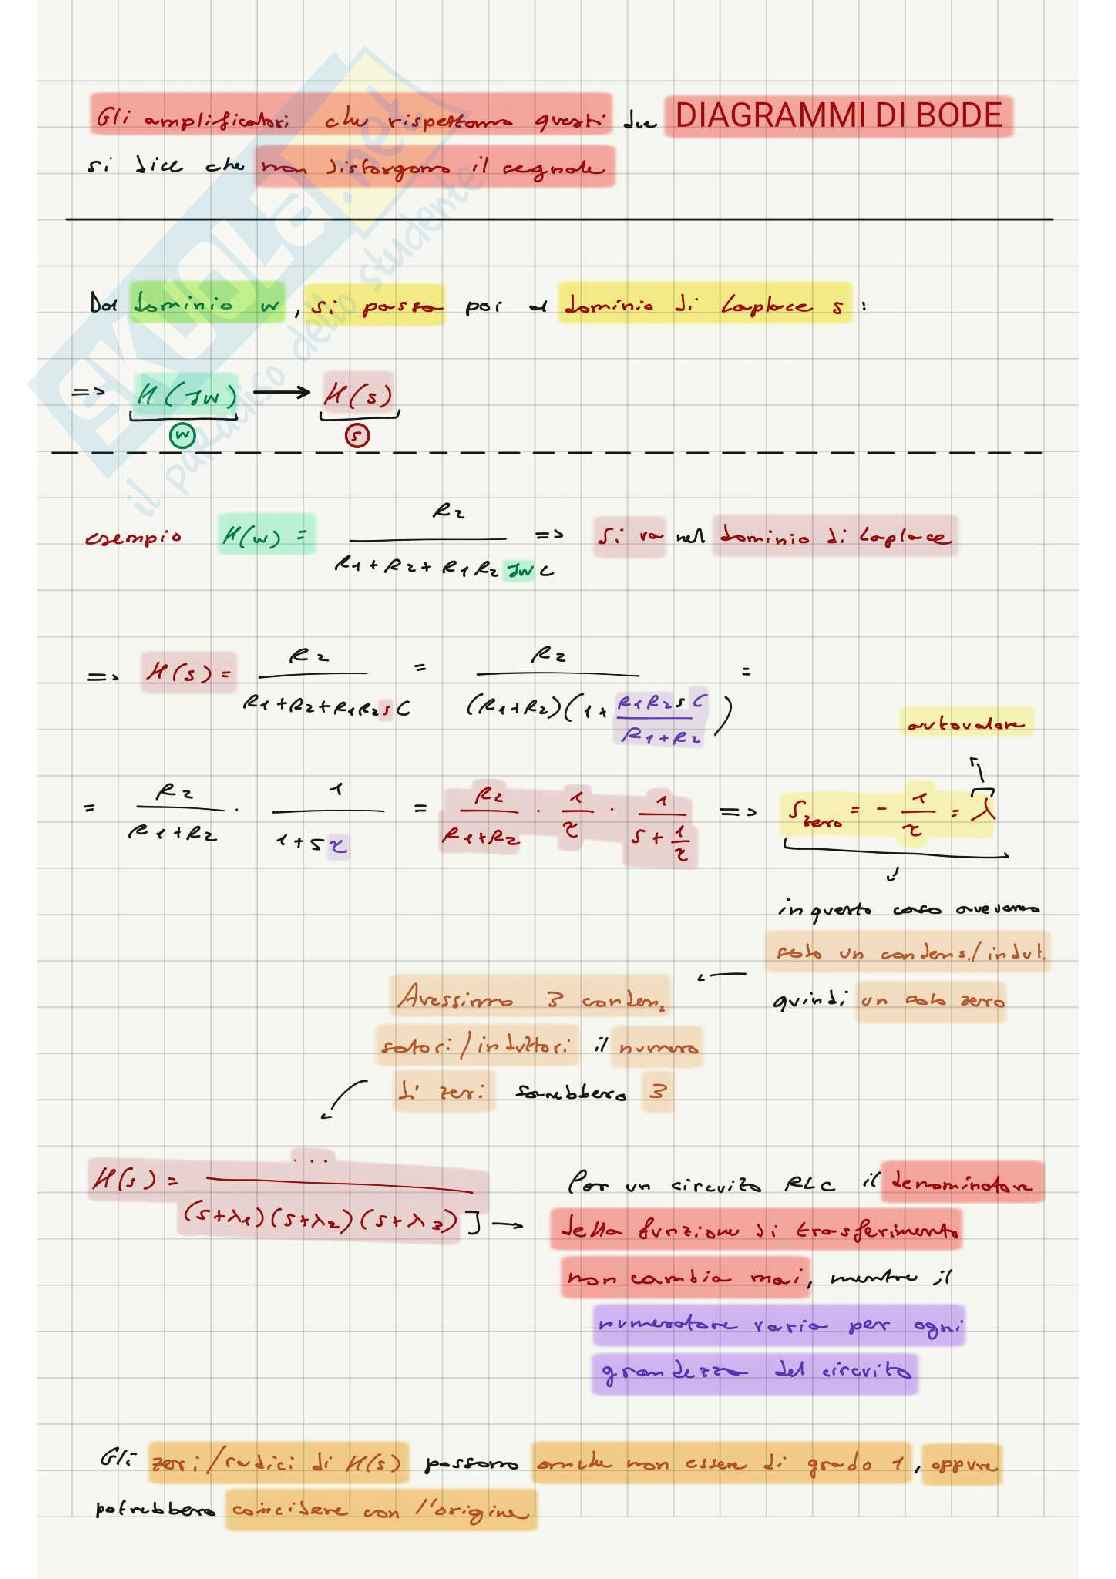 Gli amplificatori che rispettano questi due DIAGRAMMI DI BODE
si dice che non distorgono il segnale
Dal dominio w, si passa poi al dominio di Laplace s :
=> H(Jw) → H(s)
w s
esempio H(w) = R2 / (R1+R2+R1R2 Jw C) => si va nel dominio di Laplace
=> H(s) = R2 / (R1+R2+R1R2 s C) = R2 / ((R1+R2)(1+ R1R2 s C / (R1+R2))) =
autovalore
= R2 / (R1+R2) · 1 / (1+s τ) = R2 / (R1+R2) · 1/τ · 1 / (s + 1/τ) => s zero = - 1/τ = λ
in questo caso avevamo
solo un condens./indut.
quindi un solo zero
Avessimo 3 conden_
satori/induttori il numero
di zeri sarebbero 3
H(s) = ... / (s+λ1)(s+λ2)(s+λ3) ] →
Per un circuito RLC il denominatore
della funzione di trasferimento
non cambia mai, mentre il
numeratore varia per ogni
grandezza del circuito
Gli zeri/radici di H(s) possono anche non essere di grado 1, oppure
potrebbero coincidere con l'origine
SKUOLA.net
il paradiso dello studente